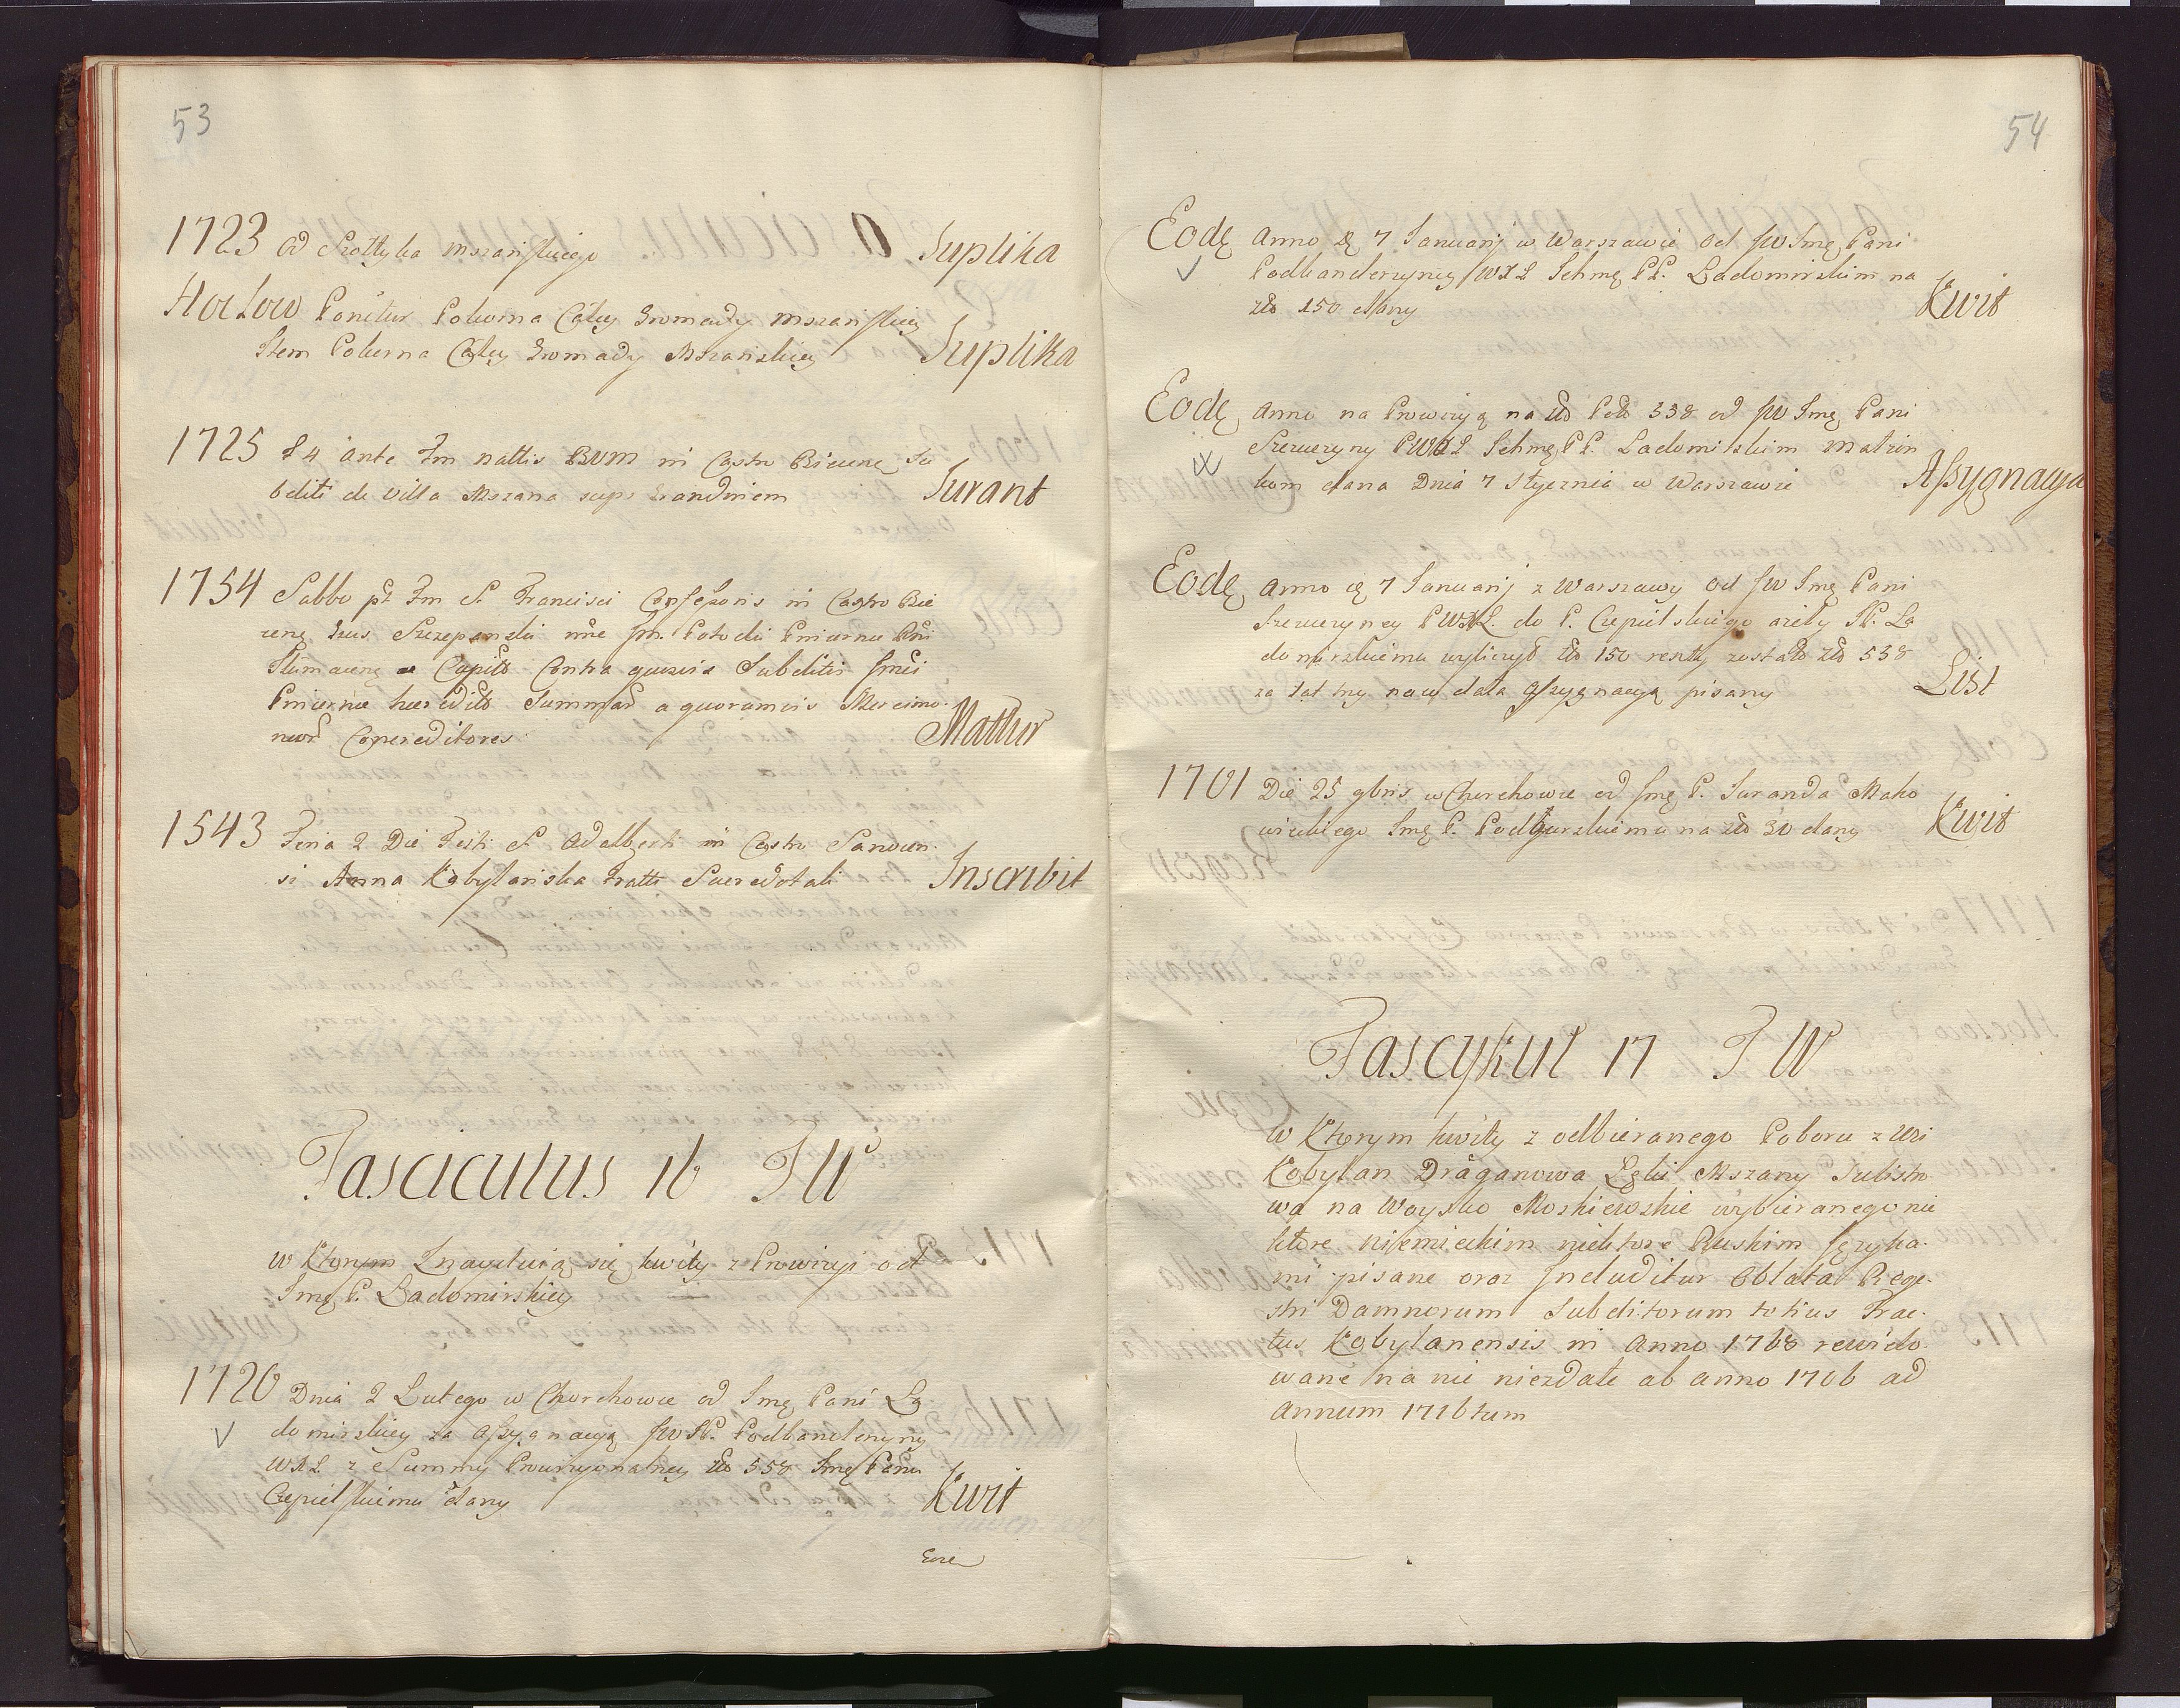 53
1723 od Szołtyka Mszańskiego Suplika
Hocloco Ponitur Pokorna Całey Gromady Mszańskiey
Item Pokorna Całey Gromady Mszańskiey Suplika
1725 f 4 ante Fm Nattis BVM in Castro Biecens Su
bditi de Villa Mszana super Jurant
1754 Sabbo pt Fm S. Francisci Confessoris in Castro Bie
cens Szczepanski Potocki
contra quosvis Subditi
Summas a quorumvis
Mattur
1543 Feria 2 Die Festi S. Adalberti in Castro Sanocen
si Anna Kobylańska Fratri Sacerdotali Inscribit
Fasciculus 16 T W
w Ktorym Znayduią się kwity z Prowizyi od
Imę P. Ladomirskiey
1720 Dnia 2 Lutego w Chorchowce od Imę Pani La
domirskiey za Assygnacyą JWP. Podkanclerzyny
WXL z Summy Prowizyonalney zło 558 Imę Panu
Czepielskiemu dany Kwit
54
Eodę Anno dę 7 Januarij w Warszawie od JW Imę Pani
Podkanclerzyney WXL Ichmę PP. Ladomirskim na
zło 150 dany Kwit
Eodę Anno na Prowizyą na zło Pols 538 od JW Imę Pani
Szczuczyny PWXL Ichmę PP. Ladomirskim Małżon
kom dana Dnia 7 Stycznia w Warszawie Assygnacya
Eodę Anno dę 7 Januarij z Warszawy od JW Imę Pani
Szczuczyney PWXL do P. Czepielskiego ażeby JP. La
domirskiemu wyliczył zło 150 resztę został zło 538
za lat trzy nową dała assygnacyą pisany List
1701 Die 25 9bris w Chorchowce od Imę P. Juranda Mako
wieckiego Imę P. Podgurskiemu na zło 30 dany Kwit
Fascykuł 17 T W
w Ktorym kwity z odbieranego Poboru z Wsi
Kobylan Draganowa Łęki Mszany Sulistro
wa na Woysko Moskiewskie wybieranego nie
ktore niemieckim niektore Ruskim Językami
pisane oraz Includitur Oblata Rege
stri Damnorum Subditorum totius Trac
tus Kobylanensis in Anno 1768 rewido
wane na nic niezdałe ab anno 1706 ad
annum 1716tum